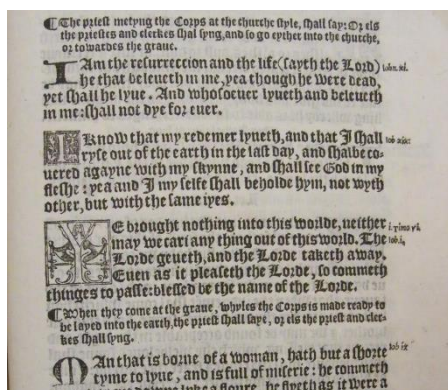 ¶The priest metyng the Corps at the churche style, shall say: Or els
the priestes and clerkes shal syng, and so go eyther into the churche,
or towardes the graue.
I Am the resurrection and the life (sayth the Lord) Iohn. xi.
he that beleueth in me, yea though he were dead,
yet shall he lyue. And whosoeuer lyueth and beleueth
in me: shall not dye for euer.
I Know that my redemer lyueth, and that I shall Iob xix.
ryse out of the earth in the last day, and shalbe co-
uered agayne with my skynne, and shall see God in my
fleshe: yea and I my selfe shall beholde hym, not wyth
other, but with the same iyes.
WE brought nothing into this worlde, neither i. Timo vi.
may we cari any thing out of this world. The Iob i.
Lorde geueth, and the Lorde taketh away.
Euen as it pleaseth the Lorde, so commeth
thinges to passe: blessed be the name of the Lorde.
¶When they come at the graue, whyles the Corps is made ready to
be layed into the earth, the priest shall saye, or els the priest and cler-
kes shall syng.
MAn that is borne of a woman, hath but a shorte Iob ix
tyme to lyue, and is full of miserie: he commeth
lyke a floure, he flyeth as it were a